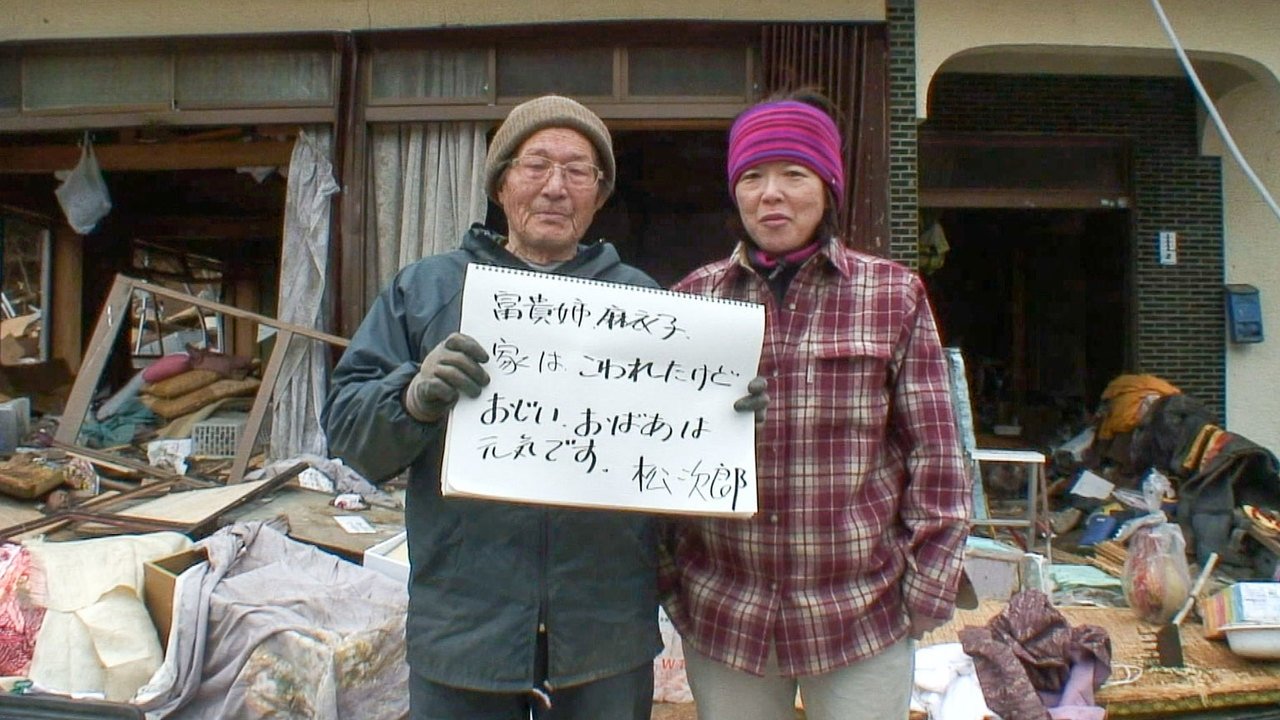 富貴姉 麻衣子、
家は、こわれたけど
おじい、おばあは
元気です。 松次郎